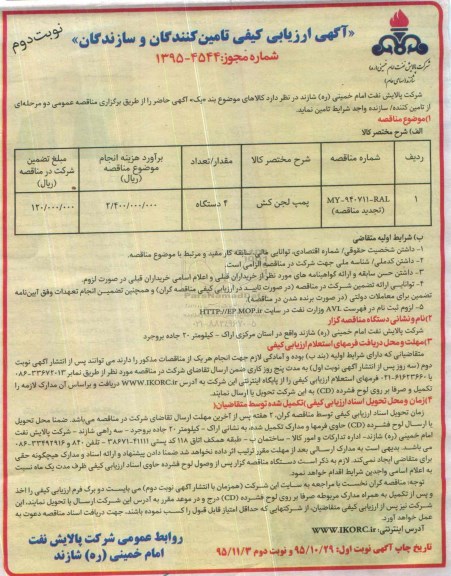 نوبت دوم
«آگهی ارزیابی کیفی تامین‌کنندگان و سازندگان»
شماره مجوز: ۴۵۴۴-۱۳۹۵
شرکت پالایش نفت امام خمینی (ره) شازند در نظر دارد کالاهای موضوع بند «یک» آگهی حاضر را از طریق برگزاری مناقصه عمومی دو مرحله‌ای
از تامین کننده/ سازنده واجد شرایط تامین نماید.
۱)موضوع مناقصه
الف) شرح مختصر کالا
ردیف شماره مناقصه شرح مختصر کالا مقدار/تعداد برآورد هزینه انجام موضوع مناقصه (ریال) مبلغ تضمین شرکت در مناقصه (ریال)
۱ MY-۹۴۰۷۱۱-RAL (تجدید مناقصه) پمپ لجن کش ۴ دستگاه ۲/۴۰۰/۰۰۰/۰۰۰ ۱۲۰/۰۰۰/۰۰۰
ب) شرایط اولیه متقاضی
۱- داشتن شخصیت حقوقی/ شماره اقتصادی، توانایی مالی، سابقه کار مفید و مرتبط با موضوع مناقصه.
۲- داشتن کدملی/ شناسه ملی جهت شرکت در مناقصه الزامی است.
۳- داشتن حسن سابقه و ارائه گواهینامه های مورد نظر از خریداران قبلی و اعلام اسامی خریداران قبلی در صورت لزوم.
۴- توانایی ارائه تضمین شرکت در مناقصه (در صورت تایید در ارزیابی کیفی مناقصه گران) و همچنین تضمین انجام تعهدات وفق آیین‌نامه
تضمین برای معاملات دولتی (در صورت برنده شدن در مناقصه).
۵- لزوم ثبت نام در فهرست AVL وزارت نفت در سایت HTTP://EP.MOP.ir
۲)نام و نشانی دستگاه مناقصه گزار
شرکت پالایش نفت امام خمینی (ره) شازند واقع در استان مرکزی، اراک - کیلومتر ۲۰ جاده بروجرد
۳)مهلت و محل دریافت فرمهای استعلام ارزیابی کیفی
متقاضیانی که دارای شرایط اولیه (بند ب) بوده و آمادگی لازم جهت انجام هریک از مناقصات مذکور را دارند می توانند پس از انتشار آگهی نوبت
دوم (سه روز پس از انتشار آگهی نوبت اول) به مدت پنج روز کاری ضمن ارسال تقاضای شرکت در مناقصه مورد نظر از طریق نمابر
فرمهای استعلام ارزیابی کیفی را از پایگاه اینترنتی این شرکت به آدرس WWW.IKORC.ir دریافت و براساس آن مدارک لازمه را
تکمیل و صرفا بر روی لوح فشرده (CD) به این شرکت تحویل یا ارسال نمایند.
۴)زمان و محل تحویل اسناد ارزیابی کیفی (تکمیل شده توسط متقاضیان)
زمان تحویل اسناد ارزیابی کیفی توسط مناقصه گران، ۲ هفته پس از آخرین مهلت ارسال تقاضای شرکت در مناقصه می‌باشد. ضمنا محل تحویل
یا ارسال لوح فشرده (CD) حاوی فرمها و مدارک تکمیل شده، به نشانی اراک - کیلومتر ۲۰ جاده بروجرد - سه راهی شازند - شرکت پالایش نفت
امام خمینی (ره) شازند، اداره تدارکات و امور کالا - ساختمان ب - طبقه همکف اتاق ۱۱۸
می باشد. بدیهی است به مدارک ارسالی بعد از مهلت مقرر ترتیب اثر داده نخواهد شد ضمنا دادن پیشنهاد و ارائه اسناد و مدارک هیچگونه حقی
برای متقاضی ایجاد نمی‌کند. لازم به ذکر است دستگاه مناقصه گزار پس از وصول لوح فشرده حاوی اسناد ارزیابی کیفی ظرف مدت یک ماه نسبت
به اعلام اسامی واجدین شرایط اقدام خواهد نمود.
توجه: مناقصه گران نخست با مراجعه به سایت این شرکت (همزمان با انتشار آگهی نوبت دوم) می بایست دو برگ فرم ارزیابی کیفی را اخذ
و پس از تکمیل به همراه مدارک مربوطه صرفا بر روی لوح فشرده (CD) درج و در موعد مقرر به آدرس این شرکت ارسال یا تحویل نمایند، این
شرکت نیز پس از ارزیابی کیفی متقاضیان، از شرکتهایی که حداقل امتیاز قابل قبول را کسب نموده باشند، جهت دریافت اسناد مناقصه دعوت به
عمل خواهد آورد.
آدرس اینترنتی: WWW.IKORC.ir
تاریخ چاپ آگهی نوبت اول: ۹۵/۱۰/۲۹ و نوبت دوم ۹۵/۱۱/۳
روابط عمومی شرکت پالایش نفت
امام خمینی (ره) شازند